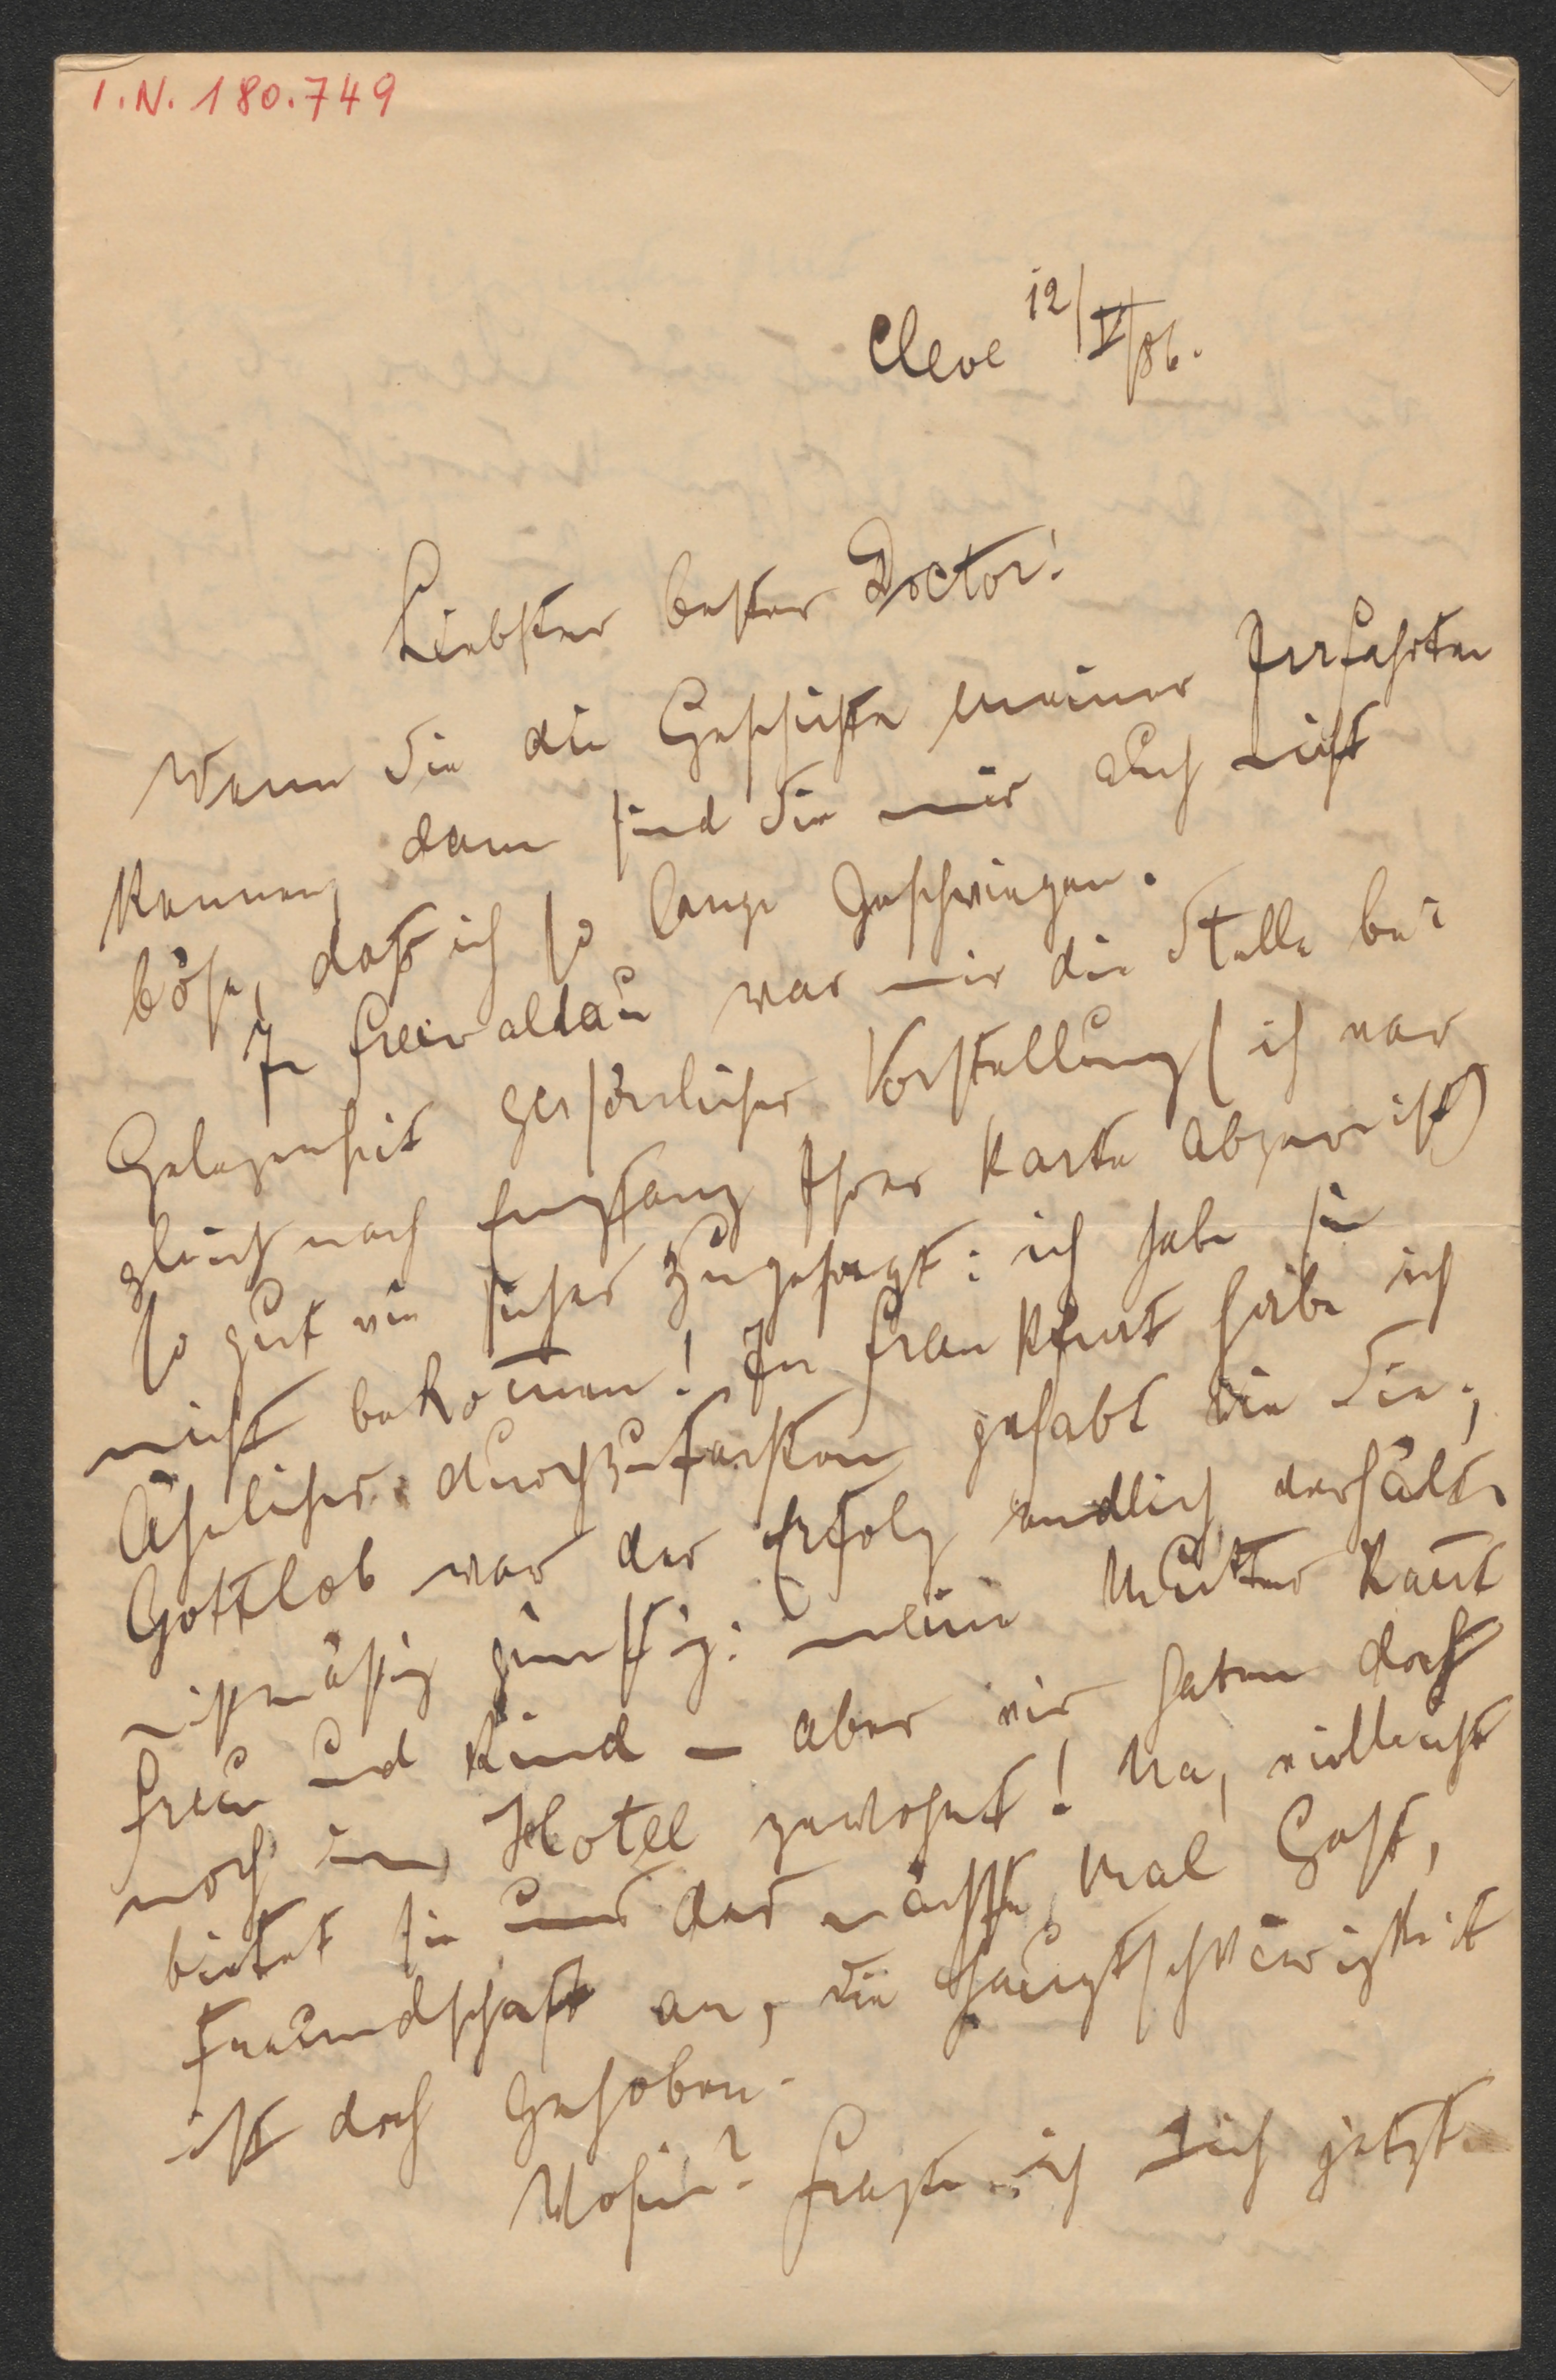 I.N. 180.749
Cleve 12/V/86.
Liebster bester Doctor!
Wenn Sie die Geschichte meiner Irrfahrten
kennen, dann sind Sie mir auch nicht
böse, daß ich so lange geschwiegen.
In Freiwaldau war mir die Stelle bei
Gelegenheit persönlicher Vorstellung (ich war
gleich nach Empfang Ihrer Karte abgereist)
so gut wie sicher zugesagt: ich habe sie
nicht bekom̄en! In Frankfurt habe ich
Ähnliches durchzufechten gehabt wie Sie;
Gottlob war der Erfolg endlich verhält-
nißmäßig günstig: meine Mutter kent
Frau und Kind – aber wir haben doch
noch im Hotel gewohnt! Na, vielleicht
bietet sie uns das nächste Mal Gast,
freundschaft an, die Hauptschwierigkeit
ist doch gehoben.
Wohin? fragte ich mich jetzt